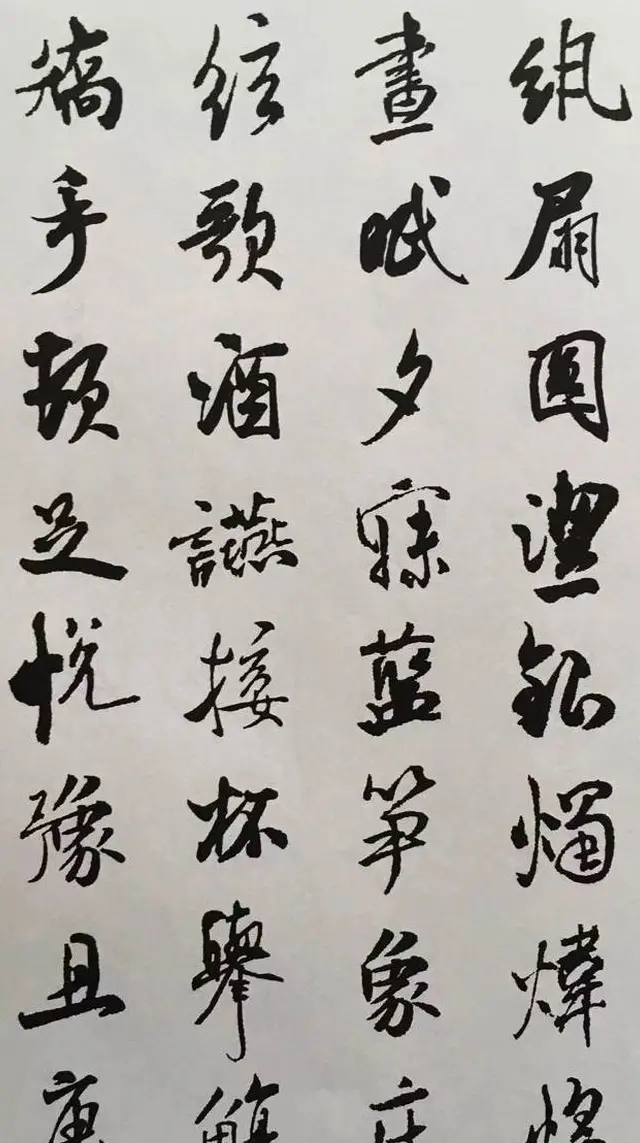 紈扇圓潔銀燭煒煌
晝眠夕寐藍笋象床
弦歌酒讌接杯舉觴
矯手頓足悅豫且康